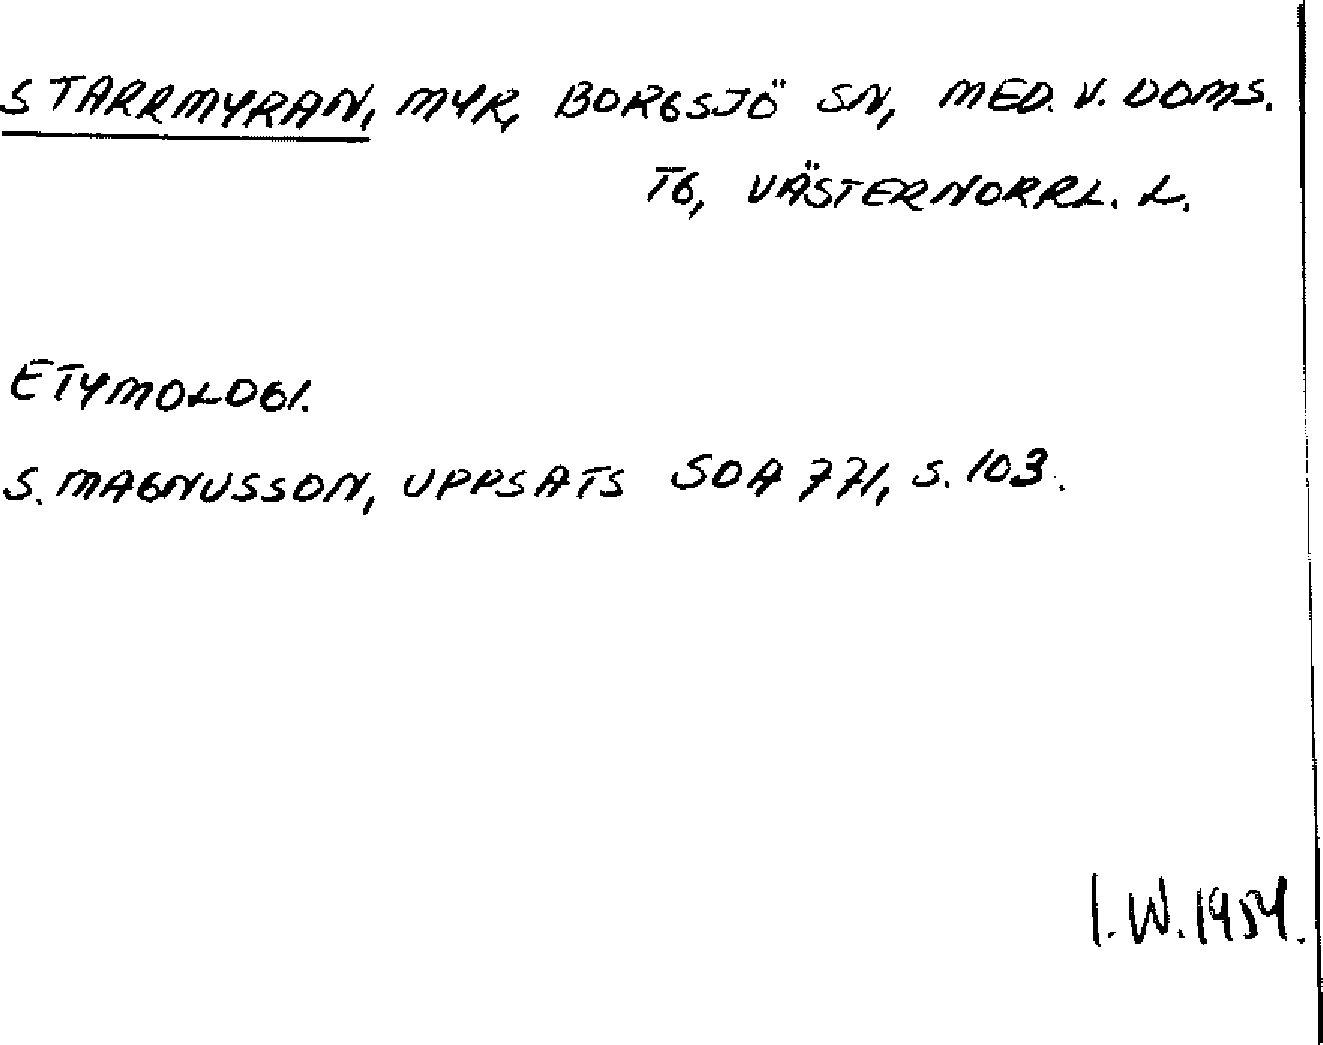 STARRMYRAN, MYR, BORGSJÖ SN, MED. V. DOMS.
TG, VÄSTERNORRL. L.
ETYMOLOGI.
S. MAGNUSSON, UPPSATS SOA 771, S. 103.
I. W. 1954.